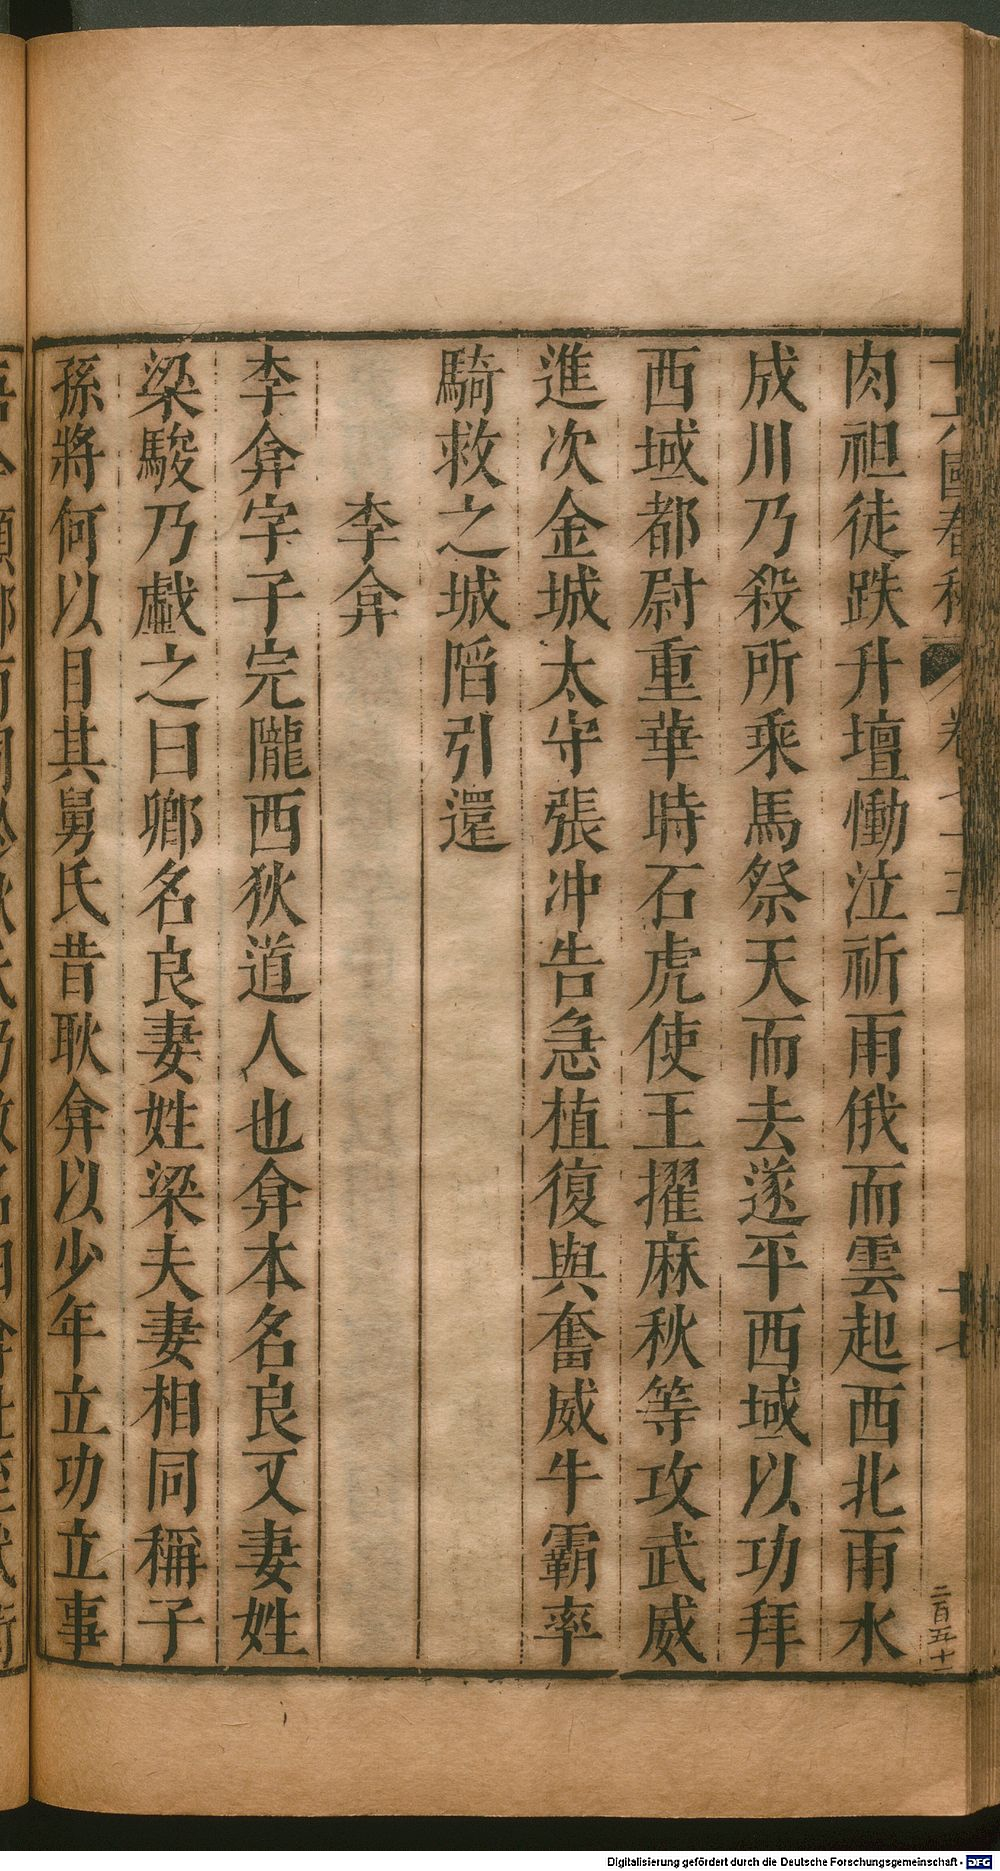 十六國春秋 卷七十五 十七 二百五十一
肉袒徒跌升壇慟泣祈雨俄而雲起西北雨水
成川乃殺所乘馬祭天而去遂平西域以功拜
西域都尉重華時石虎使王擢麻秋等攻武威
進次金城太守張冲告急植復與奮威牛霸率
騎救之城陷引還
李弇
李弇字子完隴西狄道人也弇本名良又妻姓
梁駿乃戲之曰卿名良妻姓梁夫妻相同稱子
孫將何以目其舅氏昔耿弇以少年立功立事
Digitalisierung gefördert durch die Deutsche Forschungsgemeinschaft - DFG